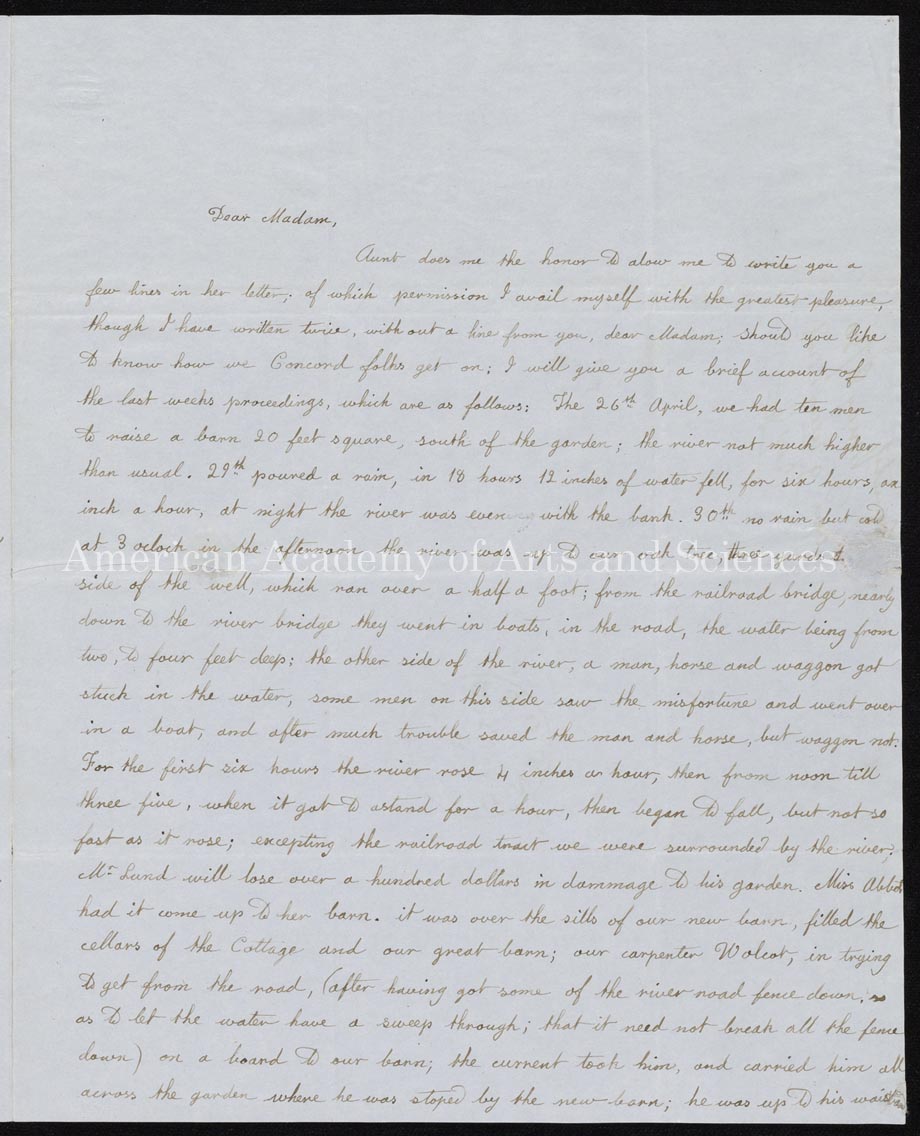 Dear Madam,
Aunt does me the honor to alow me to write you a
few lines in her letter; of which permission I avail myself with the greatest pleasure,
though I have written twice, with out a line from you, dear Madam; should you like
to know how we Concord folks get on; I will give you a brief account of
the last weeks proceedings, which are as follows: The 26th April, we had ten men
to raise a barn 20 feet square, south of the garden; the river not much higher
than usual. 29th poured a rain, in 18 hours 12 inches of water fell, for six hours, an
inch a hour, at night the river was even with the bank. 30th no rain but cold
at 3 oclock in the afternoon the river was up to our oak tree, three yards
side of the well, which ran over a half a foot; from the railroad bridge, nearly
down to the river bridge they went in boats, in the road, the water being from
two, to four feet deep; the other side of the river, a man, horse and waggon got
stuck in the water, some men on this side saw the misfortune and went over
in a boat, and after much trouble saved the man and horse, but waggon not.
For the first six hours the river rose 4 inches a hour, then from noon till
three five, when it got to astand for a hour, then began to fall, but not so
fast as it rose; excepting the railroad tract we were surrounded by the river;
Mr Lund will lose over a hundred dollars in dammage to his garden. Miss Abbot
had it come up to her barn. it was over the sills of our new barn, filled the
cellars of the Cottage and our great barn; our carpenter Wolcot, in trying
to get from the road, (after having got some of the river road fence down, so
as to let the water have a sweep through; that it need not break all the fence
down) on a board to our barn; the current took him, and carried him all
across the garden where he was stoped by the new barn; he was up to his waist
American Academy of Arts and Sciences